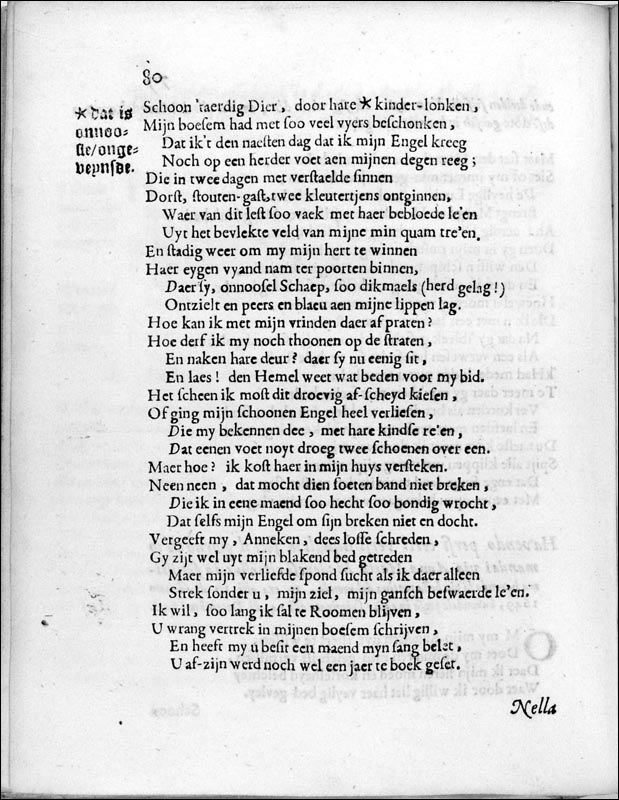 80
* Dat is
onnoo-
sle/onge-
veynsde.
Schoon 'raerdig Dier, door hare * kinder-lonken,
Mijn boesem had met soo veel vyers beschonken,
Dat ik't den naesten dag dat ik mijn Engel kreeg
Noch op een herder voet aen mijnen degen reeg;
Die in twee dagen met verstaelde sinnen
Dorst, stouten-gast, twee kleutertjens ontginnen,
Waer van dit lest soo vaek met haer bebloede le'en
Uyt het bevlekte veld van mijne min quam tre'en.
En stadig weer om my mijn hert te winnen
Haer eygen vyand nam ter poorten binnen,
Daer sy, onnoosel Schaep, soo dikmaels (herd gelag!)
Ontzielt en peers en blaeu aen mijne lippen lag.
Hoe kan ik met mijn vrinden daer af praten?
Hoe derf ik my noch thoonen op de straten,
En naken hare deur? daer sy nu eenig sit,
En laes! den Hemel weet wat beden voor my bid.
Het scheen ik most dit droevig af-scheyd kiesen,
Of ging mijn schoonen Engel heel verliesen,
Die my bekennen dee, met hare kindse re'en,
Dat eenen voet noyt droeg twee schoenen over een.
Maer hoe? ik kost haer in mijn huys versteken.
Neen neen, dat mocht dien soeten band niet breken,
Die ik in eene maend soo hecht soo bondig wrocht,
Dat selfs mijn Engel om sijn breken niet en docht.
Vergeeft my, Anneken, dees losse schreden,
Gy zijt wel uyt mijn blakend bed getreden
Maer mijn verliefde spond sucht als ik daer alleen
Strek sonder u, mijn ziel, mijn gansch beswaerde le'en.
Ik wil, soo lang ik sal te Roomen blijven,
U wrang vertrek in mijnen boesem schrijven,
En heeft my u besit een maend myn sang belet,
U af-zijn werd noch wel een jaer te boek geset.
Nella